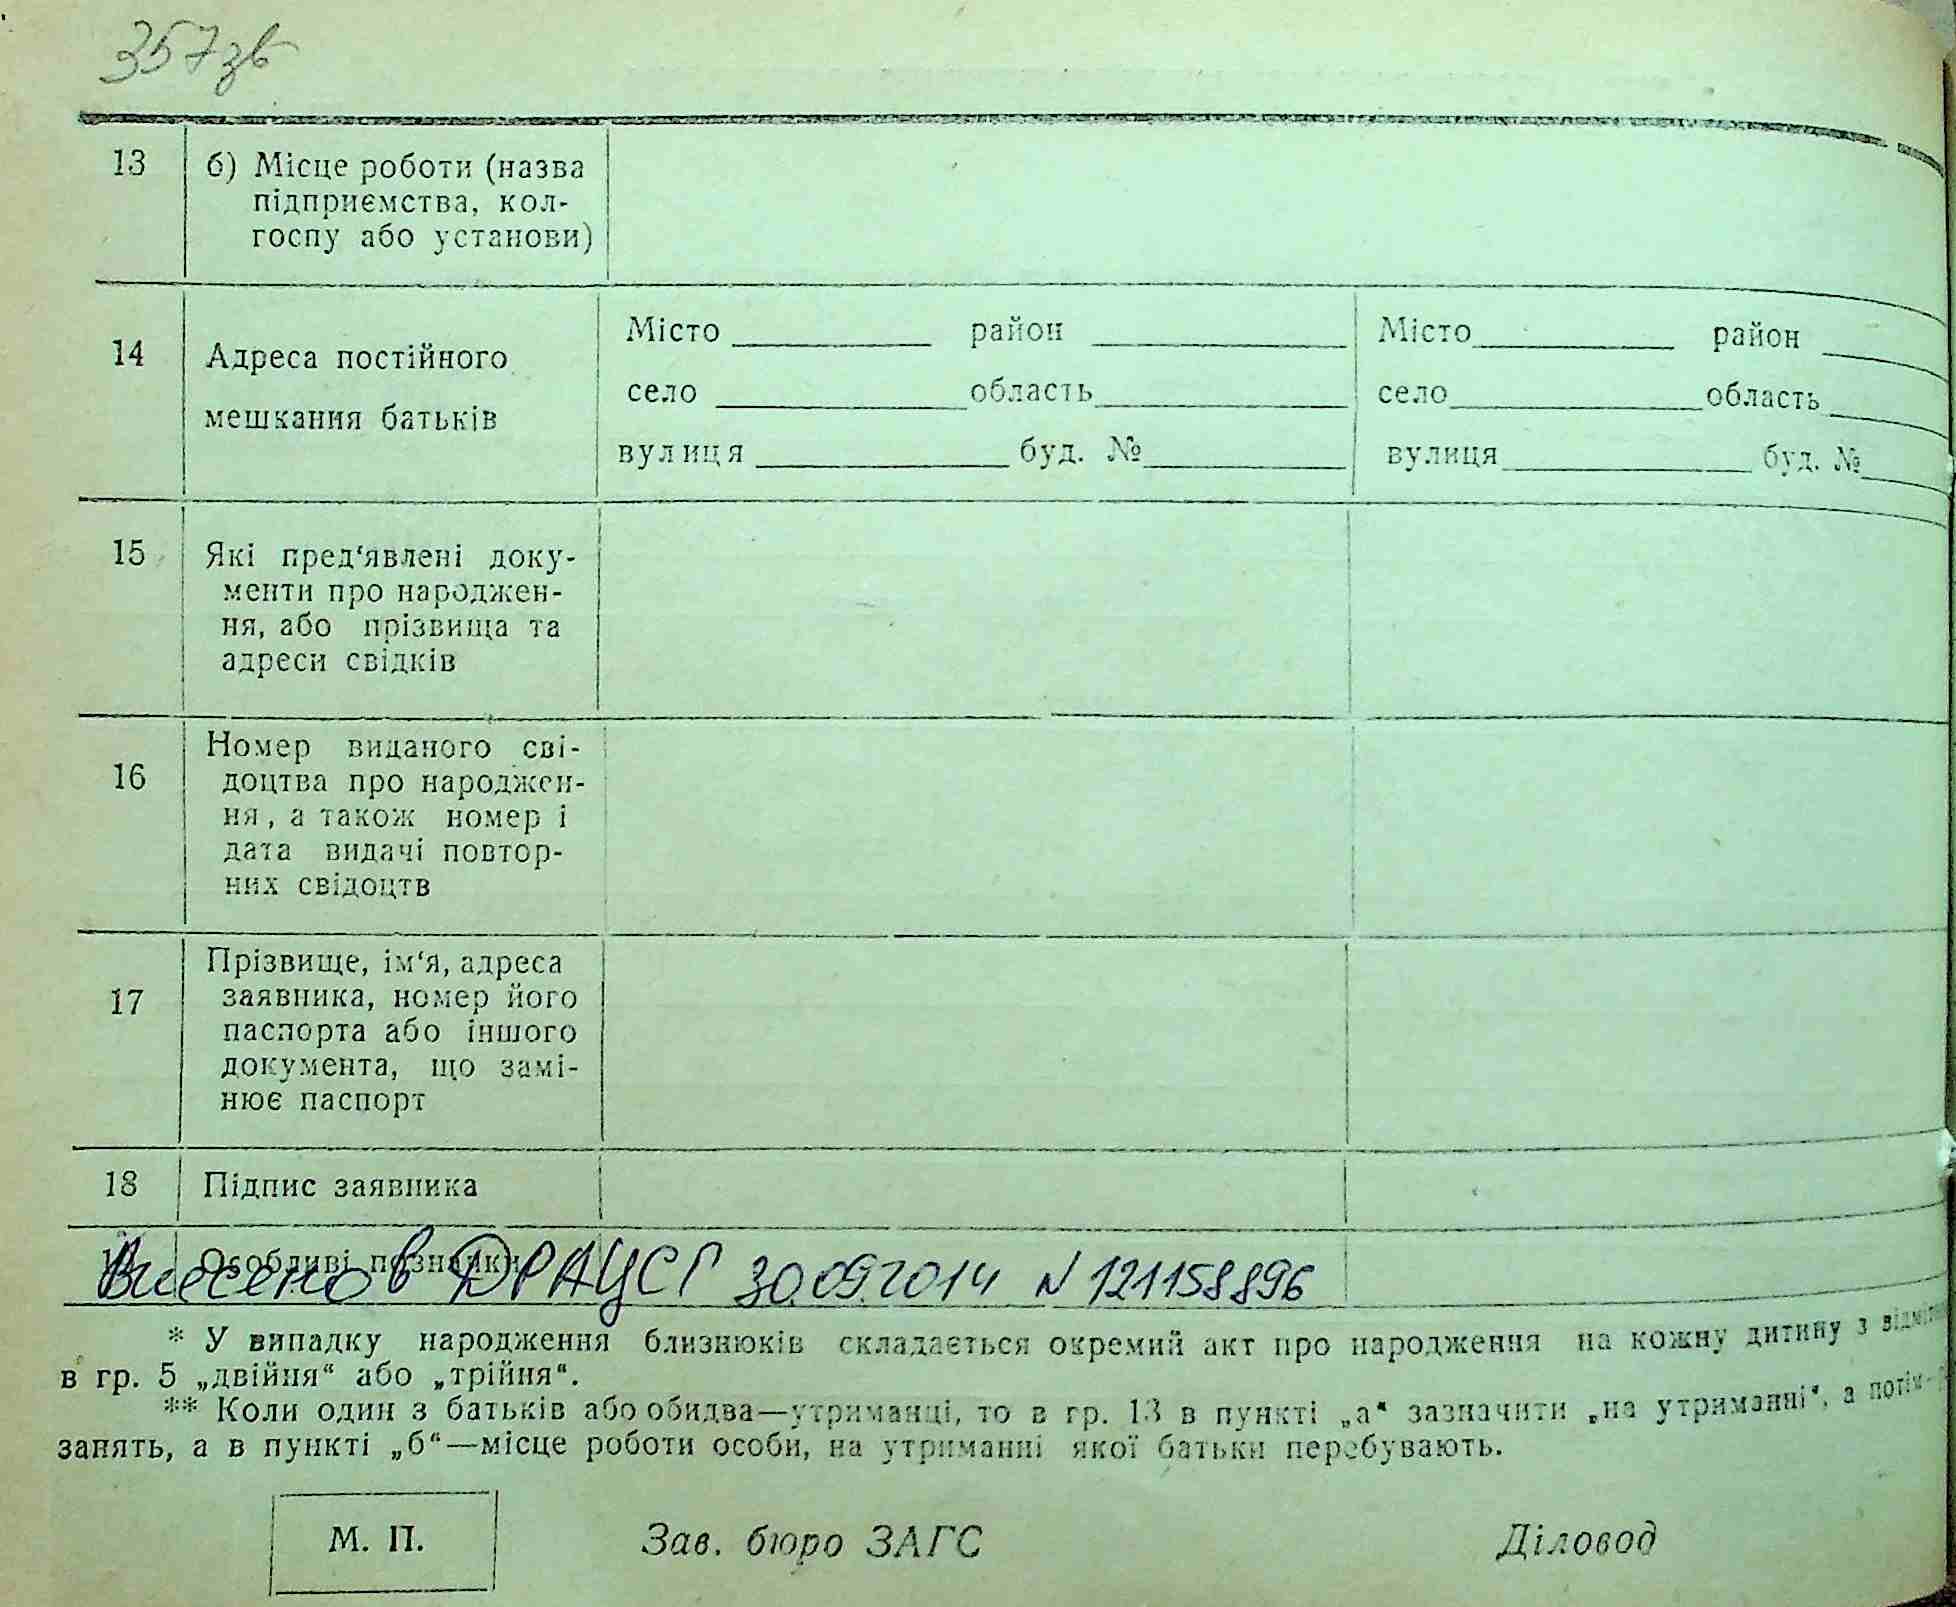 357зв
13
б) Місце роботи (назва
підприємства, кол-
госпу або установи)
14
Адреса постійного
мешкання батьків
Місто район
село область
вулиця буд. №
Місто район
село область
вулиця буд. №
15
Які пред‘явлені доку-
менти про народжен-
ня, або прізвища та
адреси свідків
16
Номер виданого сві-
доцтва про народжен-
ня, а також номер і
дата видачі повтор-
них свідоцтв
17
Прізвище, ім‘я, адреса
заявника, номер його
паспорта або іншого
документа, що замі-
нює паспорт
18
Підпис заявника
Особливі познайки
Внесено в ДРАЦСГ 30.09.2014 N 121158896
* У випадку народження близнюків складається окремий акт про народження на кожну дитину з
в гр. 5 „двійня“ або „трійня“.
** Коли один з батьків або обидва—утриманці, то в гр. 13 в пункті „а“ зазначити „на утриманні“, а потім
занять, а в пункті „б“—місце роботи особи, на утриманні якої батьки перебувають.
М. П.
Зав. бюро ЗАГС
Діловод